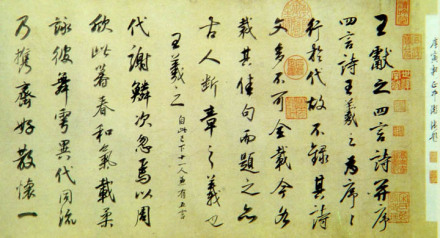 王獻之四言詩并序
四言詩王羲之為序序
行於代故不錄其詩
文多不可全載今各
裁其佳句而題之亦
古人斷章之義也
王羲之 自此已下十一人並有五言
代謝鱗次忽焉以周
欣此暮春和氣載柔
詠彼舞雩異代同流
乃攜齊好散懷一